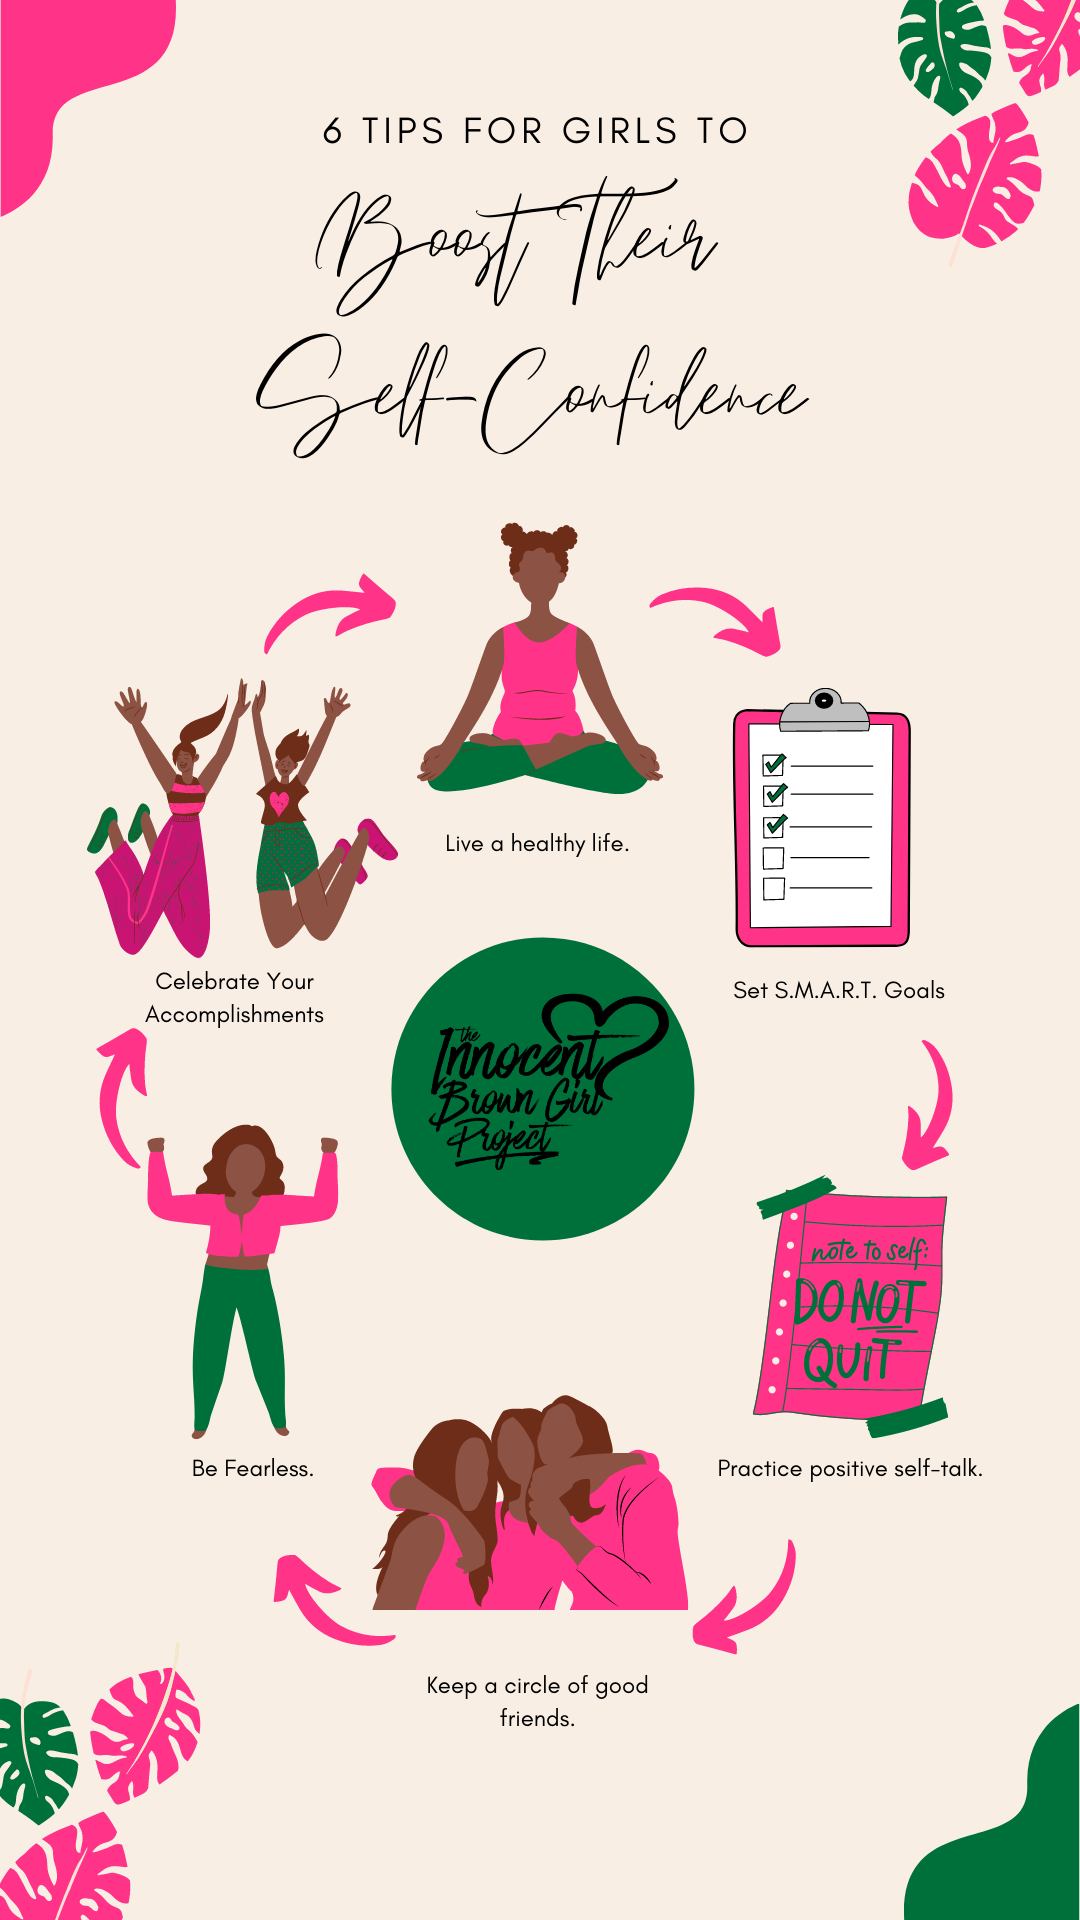 6 TIPS FOR GIRLS TO
Boost Their
Self-Confidence
Live a healthy life.
Set S.M.A.R.T. Goals
note to self:
DO NOT
QUIT
Practice positive self-talk.
Keep a circle of good
friends.
Be Fearless.
Celebrate Your
Accomplishments
the
Innocent
Brown Girl
Project